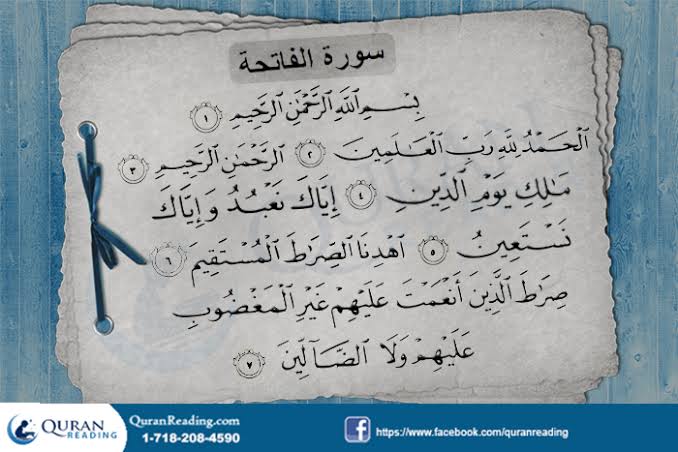 سورة الفاتحة
بِسْمِ اللَّهِ الرَّحْمَٰنِ الرَّحِيمِ ١
الْحَمْدُ لِلَّهِ رَبِّ الْعَالَمِينَ ٢ الرَّحْمَٰنِ الرَّحِيمِ ٣
مَالِكِ يَوْمِ الدِّينِ ٤ إِيَّاكَ نَعْبُدُ وَإِيَّاكَ
نَسْتَعِينُ ٥ اهْدِنَا الصِّرَاطَ الْمُسْتَقِيمَ ٦
صِرَاطَ الَّذِينَ أَنْعَمْتَ عَلَيْهِمْ غَيْرِ الْمَغْضُوبِ
عَلَيْهِمْ وَلَا الضَّآلِّينَ ٧
QURAN
READING
QuranReading.com
1-718-208-4590
f https://www.facebook.com/quranreading